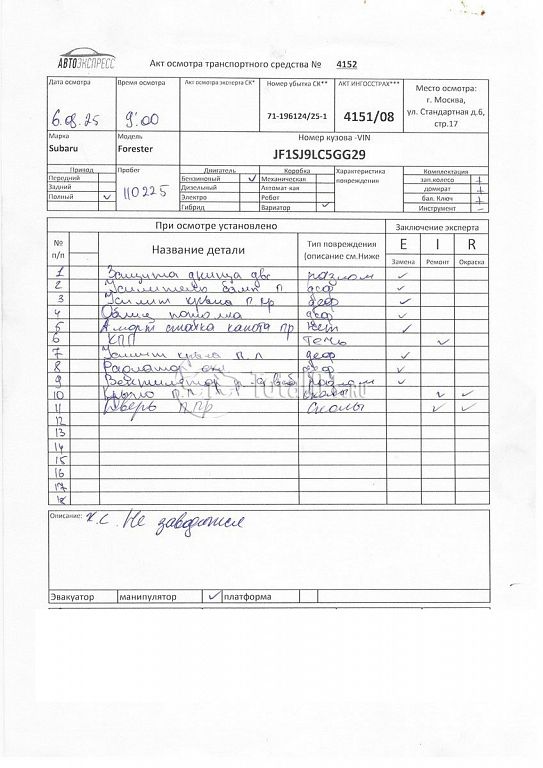 АВТОЭКСПРЕСС
Акт осмотра транспортного средства № 4152
Дата осмотра Время осмотра Акт осмотра эксперта СК* Номер убытка СК** АКТ ИНГОССТРАХ*** Место осмотра:
г. Москва,
ул. Стандартная д.6,
стр.17
6.08.25 9:00 71-196124/25-1 4151/08
Марка Модель Номер кузова -VIN
Subaru Forester JF1SJ9LC5GG29
Привод Пробег Двигатель Коробка Характеристика повреждения Комплектация
Передний Бензиновый ✓ Механическая зап.колесо +
Задний Дизельный Автомат-кая домкрат +
Полный ✓ 110225 Электро Робот бал. Ключ +
Гибрид Вариатор ✓ Инструмент –
При осмотре установлено Заключение эксперта
№ п/п Название детали Тип повреждения (описание см.Ниже E I R
Замена Ремонт Окраска
1 Защита днища двс разлом ✓
2 Усилитель бамп п деф ✓
3 Усилит крыла п пр деф ✓
4 Облиц потолка деф ✓
5 Аморт стойка капота пр нет ✓
6 КПП Течь ✓
7 Усилит крыла п л деф ✓
8 Радиатор деф ✓
9 Вентилятор р-ра разлом ✓
10 Крыло п. сколы ✓ ✓
11 Дверь п пр Сколы ✓ ✓
12
13
14
15
16
17
18
Описание: т.с. Не заводится
Эвакуатор манипулятор ✓ платформа